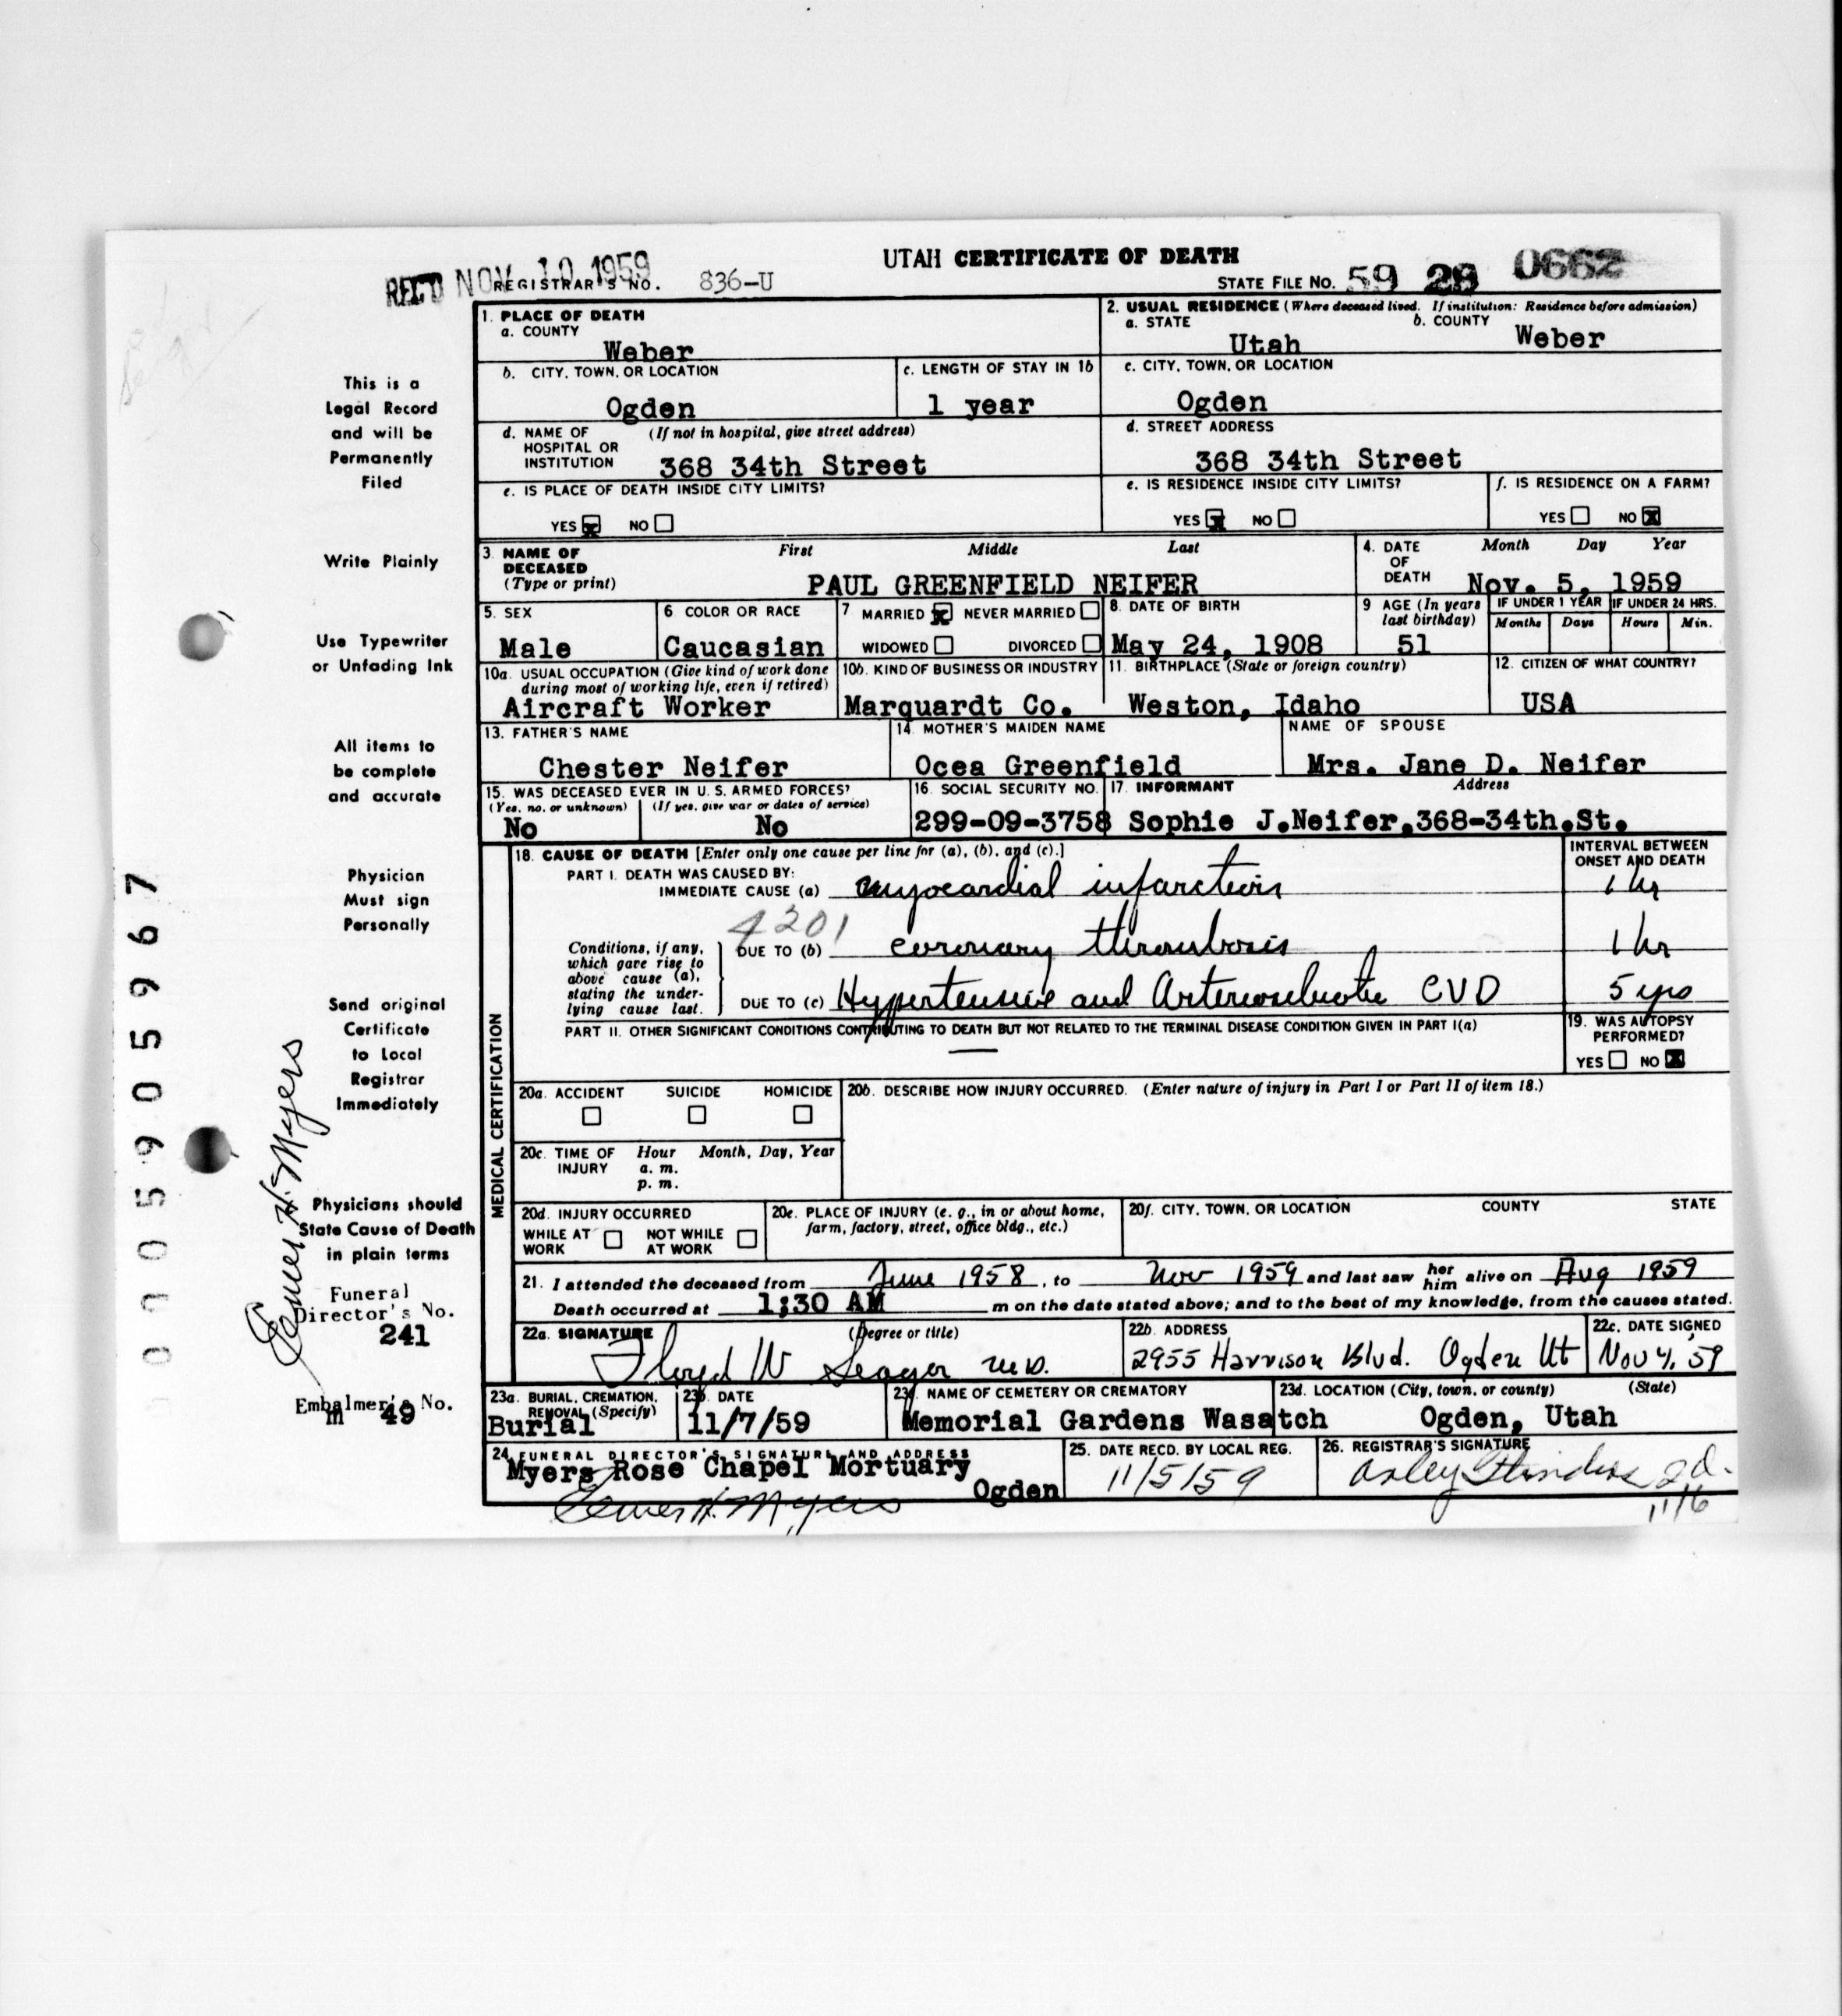 UTAH CERTIFICATE OF DEATH
REC'D NOV 10 1959
REGISTRAR'S NO. 836-U
STATE FILE NO. 59 28 0662
This is a
Legal Record
and will be
Permanently
Filed
Write Plainly
Use Typewriter
or Unfading Ink
All items to
be complete
and accurate
Physician
Must sign
Personally
Send original
Certificate
to Local
Registrar
Immediately
Physicians should
State Cause of Death
in plain terms
Funeral
Director's No.
241
Embalmer's No.
m 49
Elmer H. Myers
005905967
1. PLACE OF DEATH
a. COUNTY
Weber
2. USUAL RESIDENCE (Where deceased lived. If institution: Residence before admission)
a. STATE
Utah
b. COUNTY
Weber
b. CITY, TOWN, OR LOCATION
Ogden
c. LENGTH OF STAY IN 1b
1 year
c. CITY, TOWN, OR LOCATION
Ogden
d. NAME OF HOSPITAL OR INSTITUTION (If not in hospital, give street address)
368 34th Street
d. STREET ADDRESS
368 34th Street
e. IS PLACE OF DEATH INSIDE CITY LIMITS?
YES x NO
e. IS RESIDENCE INSIDE CITY LIMITS?
YES x NO
f. IS RESIDENCE ON A FARM?
YES NO x
3. NAME OF DECEASED (Type or print)
First Middle Last
PAUL GREENFIELD NEIFER
4. DATE OF DEATH
Month Day Year
Nov. 5, 1959
5. SEX
Male
6 COLOR OR RACE
Caucasian
7 MARRIED x NEVER MARRIED
WIDOWED DIVORCED
8. DATE OF BIRTH
May 24, 1908
9 AGE (In years last birthday)
51
IF UNDER 1 YEAR
Months Days
IF UNDER 24 HRS.
Hours Min.
10a. USUAL OCCUPATION (Give kind of work done during most of working life, even if retired)
Aircraft Worker
10b. KIND OF BUSINESS OR INDUSTRY
Marquardt Co.
11. BIRTHPLACE (State or foreign country)
Weston, Idaho
12. CITIZEN OF WHAT COUNTRY?
USA
13. FATHER'S NAME
Chester Neifer
14. MOTHER'S MAIDEN NAME
Ocea Greenfield
NAME OF SPOUSE
Mrs. Jane D. Neifer
15. WAS DECEASED EVER IN U. S. ARMED FORCES?
(Yes, no, or unknown) (If yes, give war or dates of service)
No No
16. SOCIAL SECURITY NO.
299-09-3758
17. INFORMANT Address
Sophie J.Neifer,368-34th.St.
MEDICAL CERTIFICATION
18. CAUSE OF DEATH [Enter only one cause per line for (a), (b), and (c).]
INTERVAL BETWEEN ONSET AND DEATH
PART I. DEATH WAS CAUSED BY:
IMMEDIATE CAUSE (a) myocardial infarction 1 hr
4201
Conditions, if any, which gave rise to above cause (a), stating the underlying cause last.
DUE TO (b) coronary thrombosis 1 hr
DUE TO (c) Hypertensive and Arteriosclerotic CVD 5 yrs
PART II. OTHER SIGNIFICANT CONDITIONS CONTRIBUTING TO DEATH BUT NOT RELATED TO THE TERMINAL DISEASE CONDITION GIVEN IN PART I(a)
19. WAS AUTOPSY PERFORMED?
YES NO x
20a. ACCIDENT SUICIDE HOMICIDE
20b. DESCRIBE HOW INJURY OCCURRED. (Enter nature of injury in Part I or Part II of item 18.)
20c. TIME OF INJURY Hour Month, Day, Year
a. m.
p. m.
20d. INJURY OCCURRED
WHILE AT WORK NOT WHILE AT WORK
20e. PLACE OF INJURY (e. g., in or about home, farm, factory, street, office bldg., etc.)
20f. CITY, TOWN, OR LOCATION COUNTY STATE
21. I attended the deceased from June 1958, to Nov 1959 and last saw her him alive on Aug 1959
Death occurred at 1:30 AM m on the date stated above; and to the best of my knowledge, from the causes stated.
22a. SIGNATURE (Degree or title)
Floyd W Seager M.D.
22b. ADDRESS
2955 Harrison Blvd. Ogden Ut
22c. DATE SIGNED
Nov 4, 59
23a. BURIAL, CREMATION, REMOVAL (Specify)
Burial
23b. DATE
11/7/59
23c. NAME OF CEMETERY OR CREMATORY
Memorial Gardens Wasatch
23d. LOCATION (City, town, or county) (State)
Ogden, Utah
24. FUNERAL DIRECTOR'S SIGNATURE AND ADDRESS
Myers Rose Chapel Mortuary
Ogden
Elmer H. Myers
25. DATE RECD. BY LOCAL REG.
11/5/59
26. REGISTRAR'S SIGNATURE
11/6